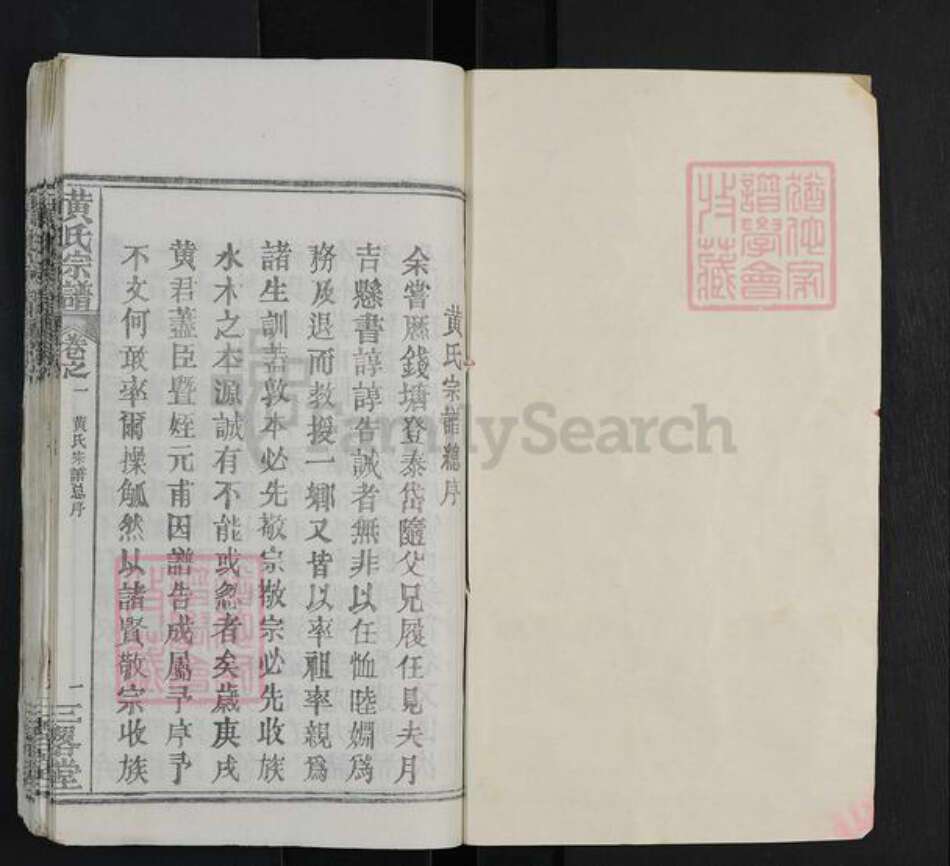 黄氏宗譜總序
余嘗歷錢塘登泰岱隨父兄履任見夫月
吉懸書諄諄告誡者無非以任恤睦婣爲
務及退而教授一鄉又皆以率祖率親爲
諸生訓葢敦本必先敬宗敬宗必先收族
水木之本源誠有不能或忽者矣歲庚戌
黄君藎臣暨姪元甫因譜告成屬予序予
不文何敢率爾操觚然以諸賢敬宗收族
黄氏宗譜
卷之一
黄氏宗譜總序
一
三畧堂
譜學會
收藏
FamilySearch